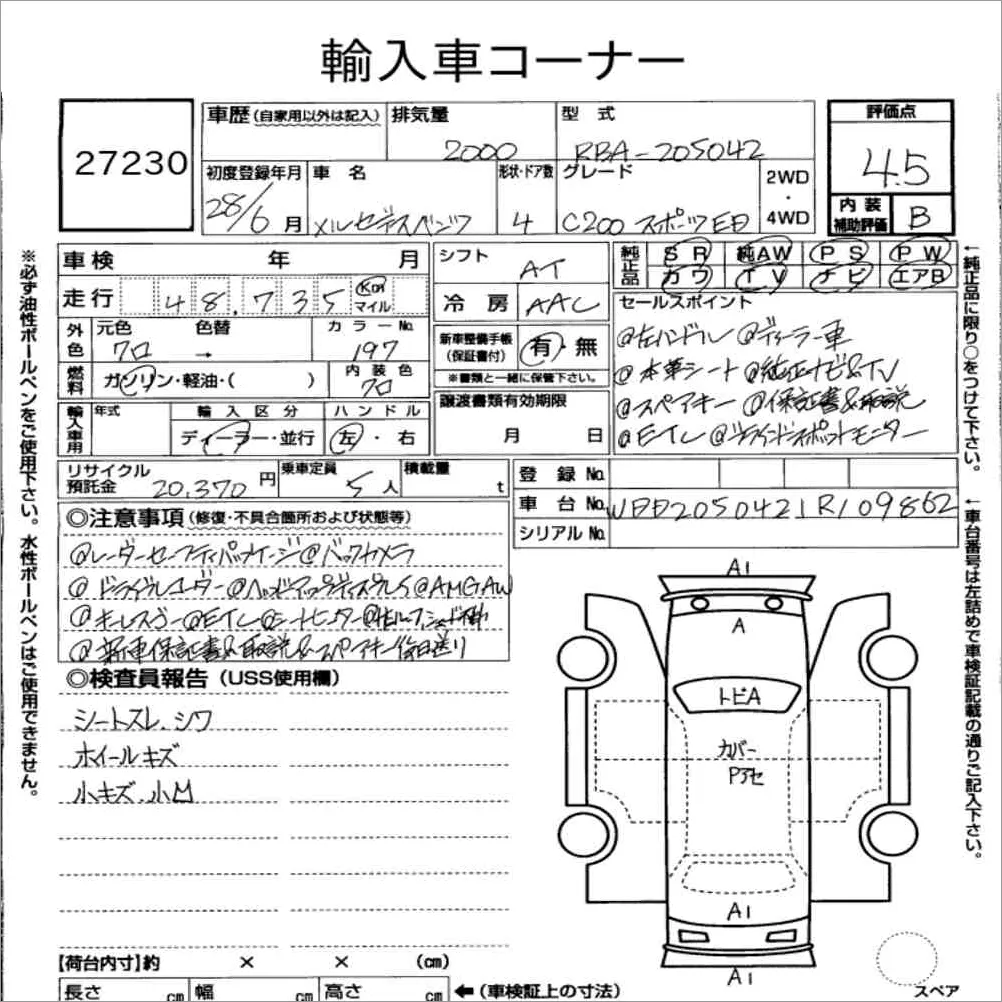 輸入車コーナー
27230
車歴 (自家用以外は記入)
排気量
2000
型 式
RBA-205042
評価点
4.5
内 装
補助評価
B
初度登録年月
28/6 月
車 名
メルセデスベンツ
形状・ドア数
4
グレード
C200 スポーツ
2WD
・
4WD
車 検 年 月
走 行 48,735 Km マイル
シフト
AT
冷 房
AAC
純正品
SR 純AW PS PW
カワ TV ナビ エアB
外色
元色
クロ
色替
→
カラーNo.
197
燃料
ガソリン・軽油・( )
内 装 色
クロ
新車整備手帳
(保証書付)
有・無
※書類と一緒に保管下さい。
セールスポイント
@左ハンドル @ディーラー車
@本革シート @純正ナビ&TV
@スペアキー @保証書&取説
@ETC @ブラインドスポットモニター
輸入車用
年式
輸 入 区 分
ディーラー・並行
ハ ン ド ル
左・右
譲渡書類有効期限
月 日
リサイクル
預託金
20,370 円
乗車定員
5 人
積載量
t
登 録 No.
車 台 No. WDD2050421R109862
シリアル No.
◎注意事項 (修復・不具合箇所および状態等)
@レーダーセーフティパッケージ @バックカメラ
@ドライブレコーダー @ヘッドアップディスプレイ @AMGAW
@キーレスゴー @ETC @シートヒーター
@新車保証書&取説&スペアキー後日送り
◎検査員報告 (USS使用欄)
シートスレ、シワ
ホイールキズ
小キズ、小凹
A1
A
トビA
カバー
Pアセ
A1
A1
スペア
【荷台内寸】約 × × (cm)
長さ cm 幅 cm 高さ cm ←(車検証上の寸法)
※必ず油性ボールペンをご使用下さい。水性ボールペンはご使用できません。
←純正品に限り○をつけて下さい。
←車台番号は左詰めで車検証記載の通りご記入下さい。